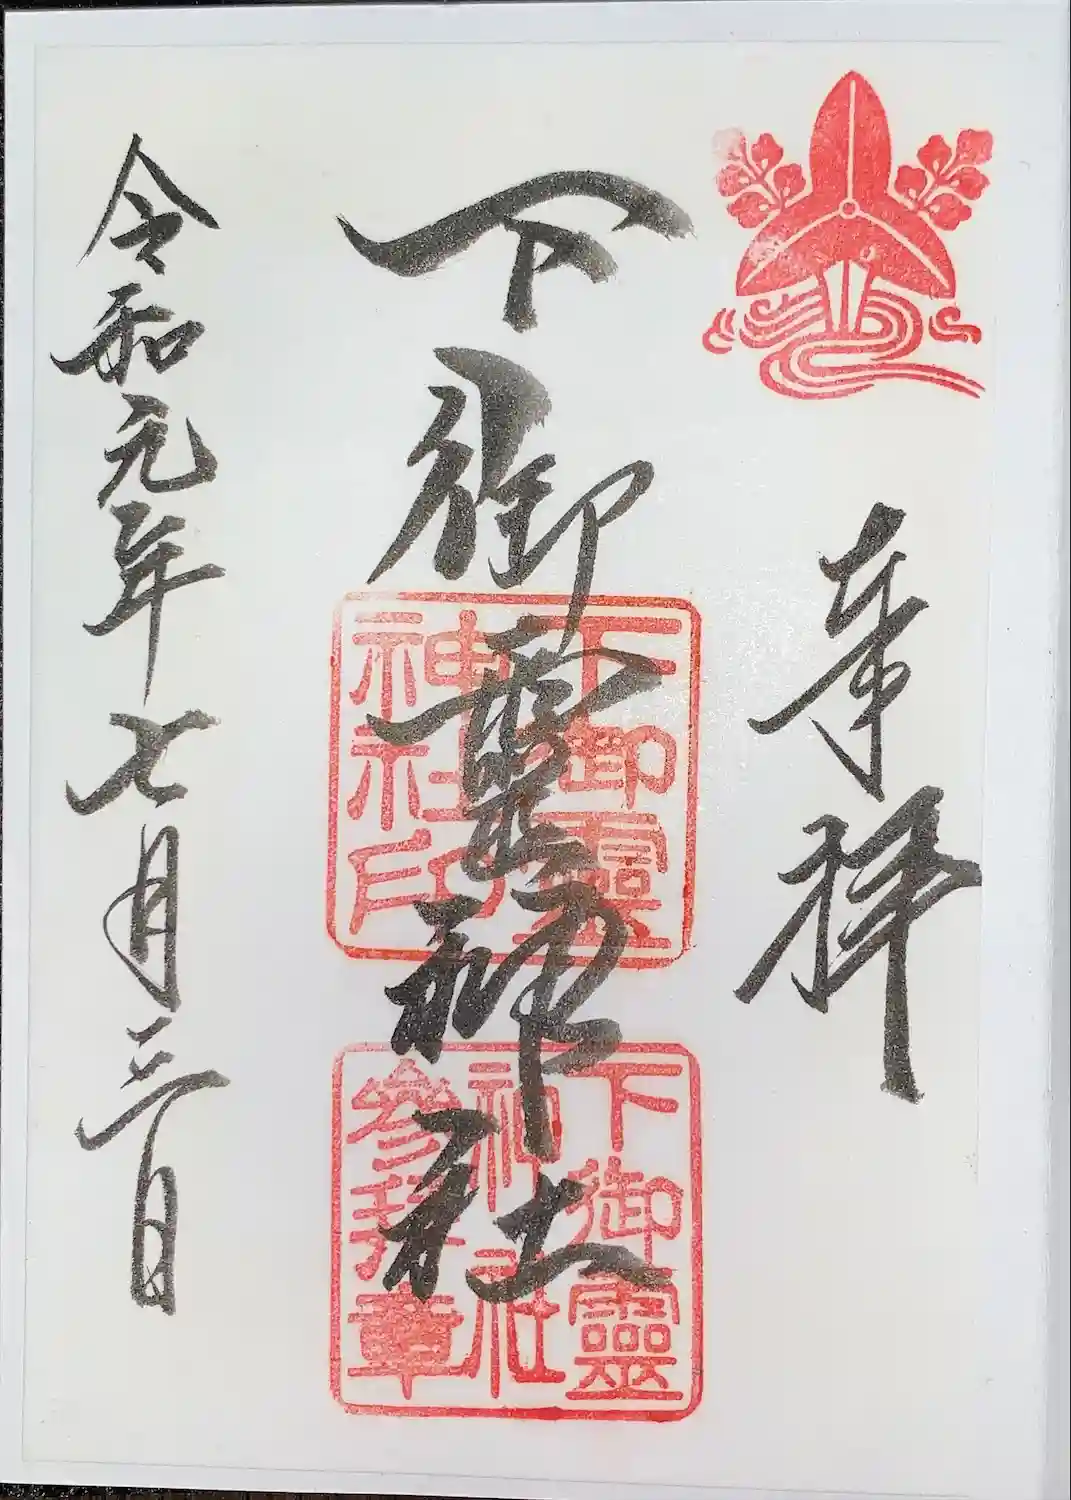 奉拝
下御靈神社
下御靈
神社印
下御靈
神社
參拜章
令和元年七月三日